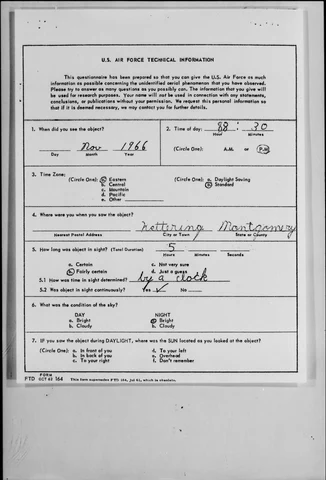 U.S. AIR FORCE TECHNICAL INFORMATION
This questionnaire has been prepared so that you can give the U.S. Air Force as much
information as possible concerning the unidentified aerial phenomenon that you have observed.
Please try to answer as many questions as you possibly can. The information that you give will
be used for research purposes. Your name will not be used in connection with any statements,
conclusions, or publications without your permission. We request this personal information so
that if it is deemed necessary, we may contact you for further details.
1. When did you see the object?
Nov 1966
Day Month Year
2. Time of day: 30
Hour Minutes
(Circle One): A.M. or P.M.
3. Time Zone:
(Circle One): a. Eastern
b. Central
c. Mountain
d. Pacific
e. Other
(Circle One): a. Daylight Saving
b. Standard
4. Where were you when you saw the object?
Kettering Montgomery
Nearest Postal Address City or Town State or County
5. How long was object in sight? (Total Duration) 5
Hours Minutes Seconds
a. Certain c. Not very sure
b. Fairly certain d. Just a guess
5.1 How was time in sight determined? by a clock
5.2 Was object in sight continuously? Yes ✓ No
6. What was the condition of the sky?
DAY NIGHT
a. Bright a. Bright
b. Cloudy b. Cloudy
7. IF you saw the object during DAYLIGHT, where was the SUN located as you looked at the object?
(Circle One): a. In front of you d. To your left
b. In back of you e. Overhead
c. To your right f. Don't remember
FORM
FTD OCT 62 164 This form supersedes FTD 164, Jul 61, which is obsolete.